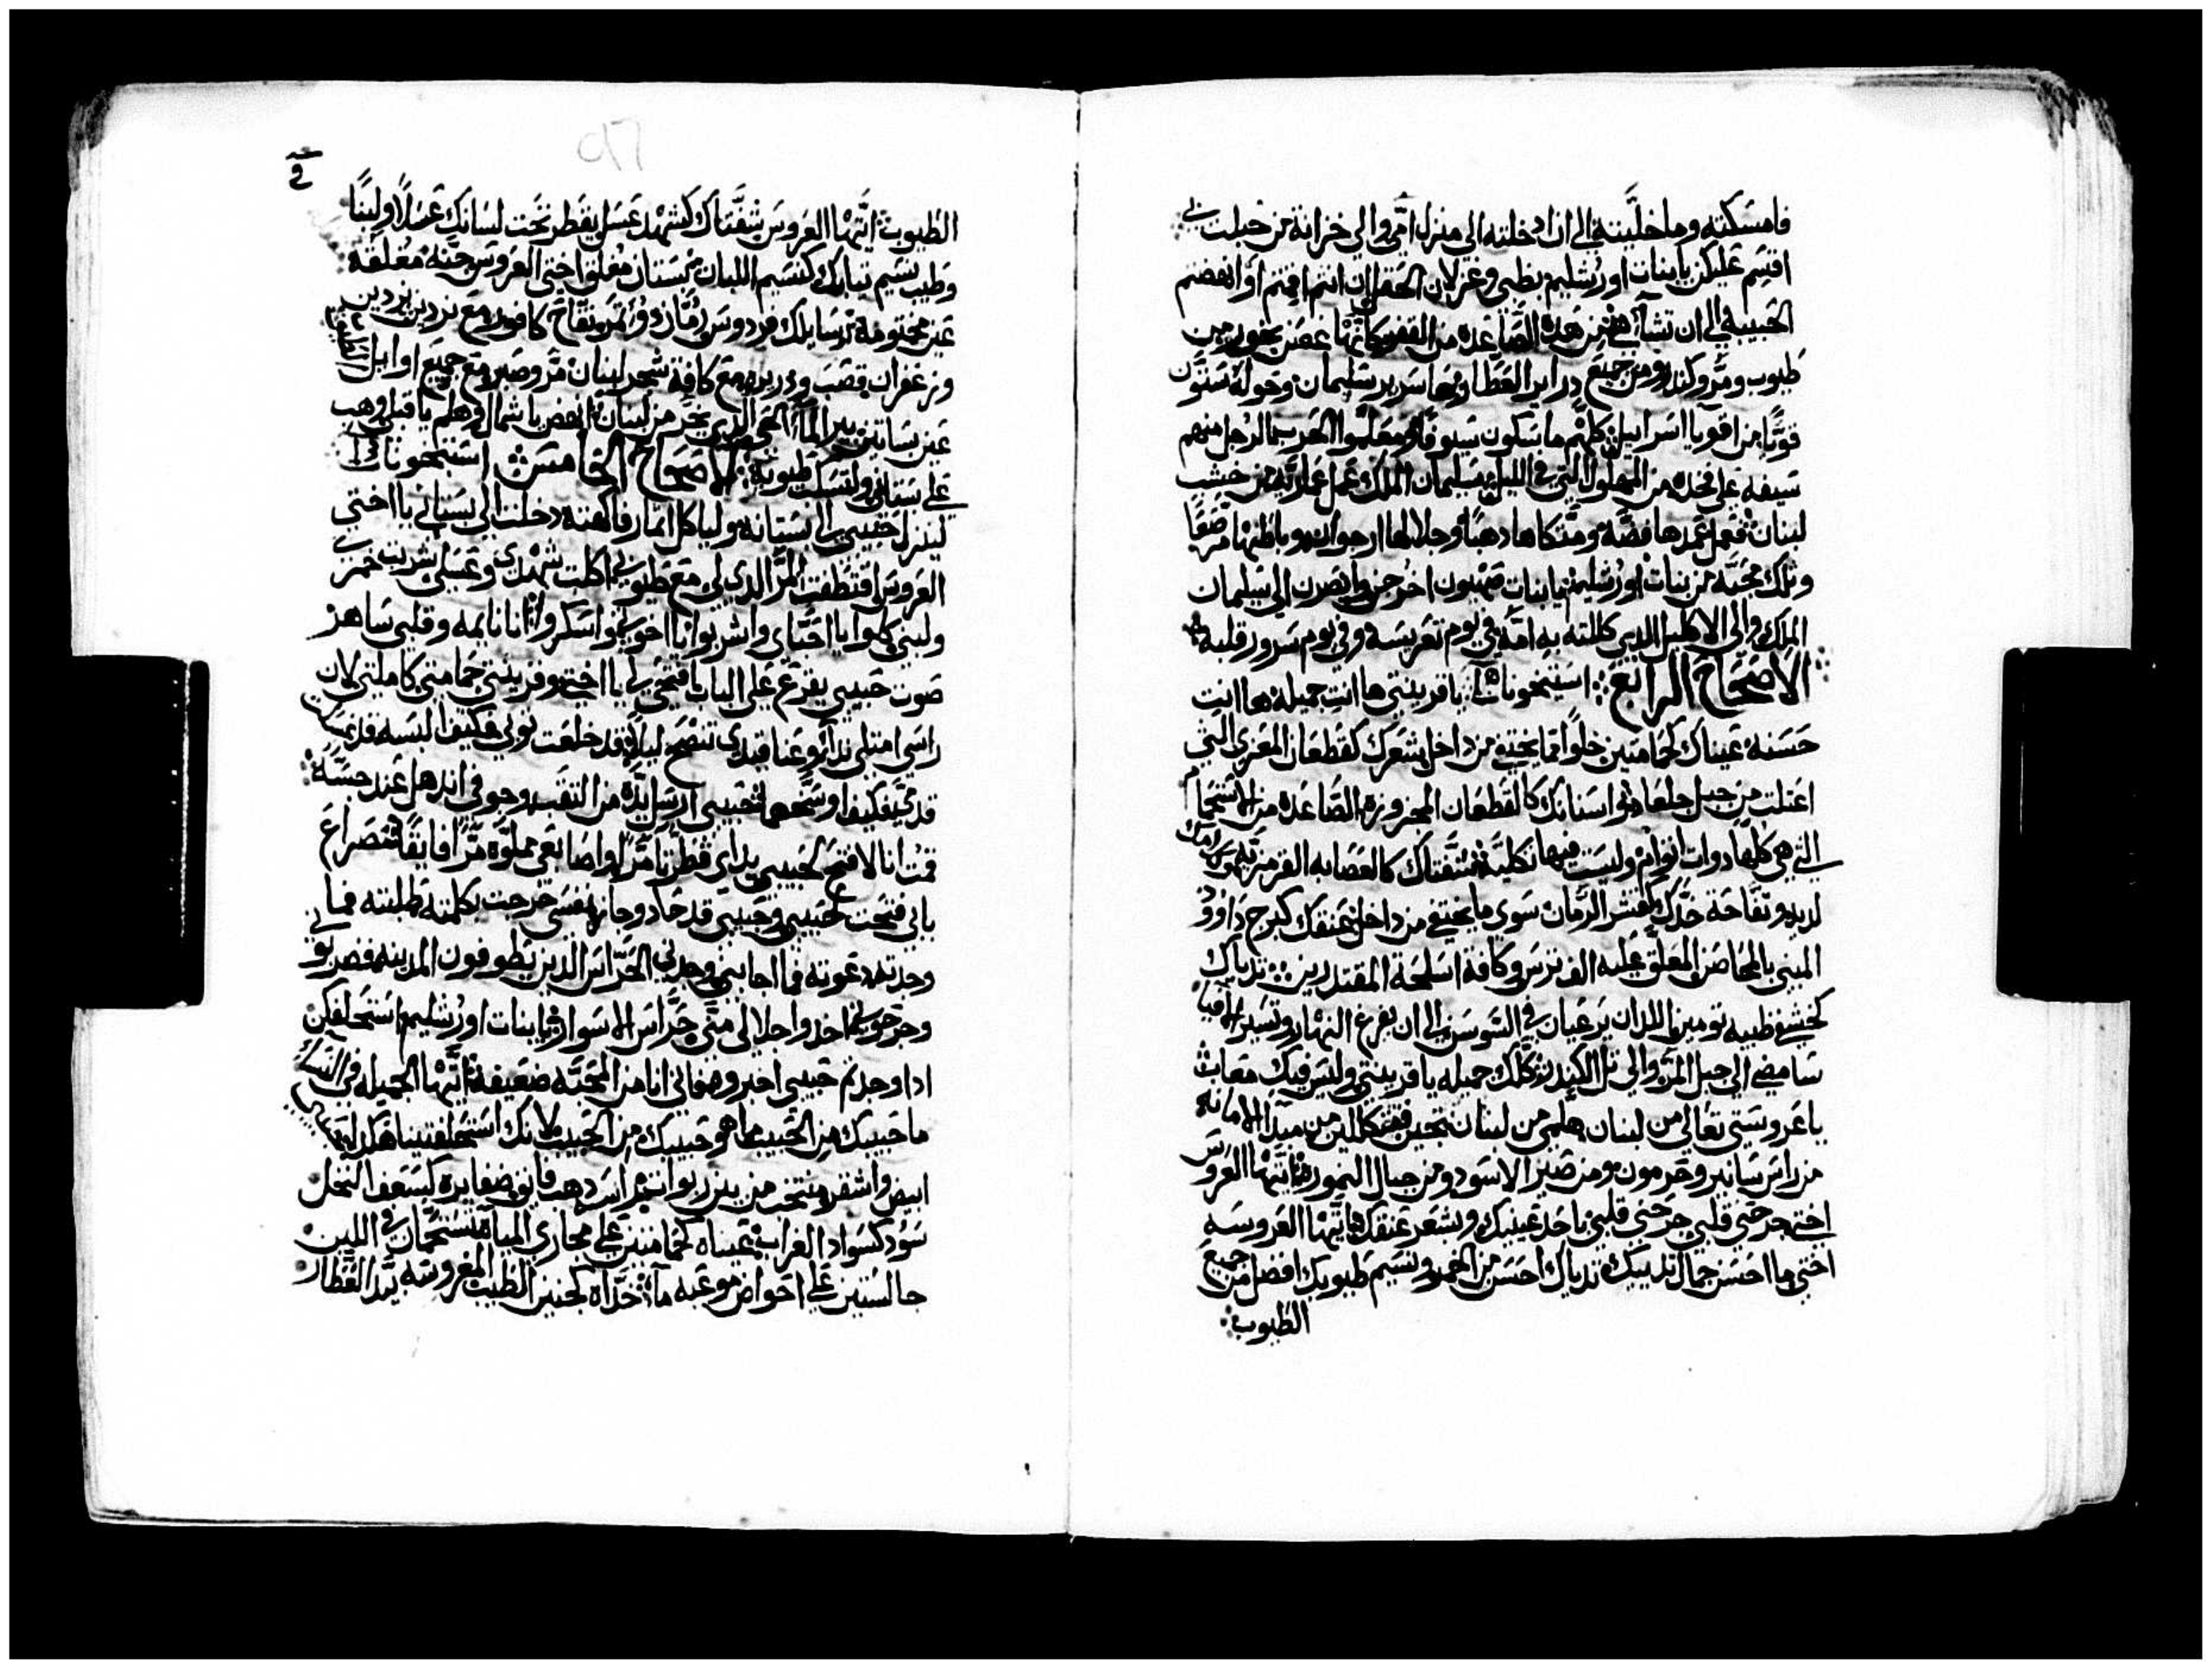 فامسكته وما خليته الى ان ادخلته الى منزل امي والى خزانة من حبلت بي
اقسم عليكن يا بنات اورشليم بظبي وغزلان الحقل ان انتم اقمتم او انهضتم
الحبيبة الى ان تشآ من هذه الصاعدة من القفر كانها غصن بخور من
طيوب ومر وكندر ومن جميع دراير العطار وها سرير سليمان وحوله ستون
قويًا من اقويا اسراييل كلهم ماسكون سيوفا ومعلموا الحرب الرجل منهم
سيفه على فخده من الهلول التي في الليل سليمان الملك عمل عمارته من خشب
لبنان فعمل عمدها فضة ومتكاها دهبا وحلالها ارجوان وباطنها مرصعا
وتلك محبة من بنات اورشليم يا بنات صهيون اخرجن وابصرن الى سليمان
الملك والى الاكليل الدي كللته به امه في يوم تعريسه وفي يوم سرور قلبه
الاصحاح الرابع استيخونات يا قرينتي ها انت جميلة ها انت
حسنة عيناك كحمامتين خلوا مما يختفي من داخل شعرك كقطعان المعزى التي
اعتلت من جبل جلعاد اسنانك كالقطعان المجزوزة الصاعدة من الاستحمام
التي هي كلها دوات اتوام وليست فيها تكلية شفتاك كالعصابه القرمزية وكلامك
لديد وتفاحة خدك كقشر الرمان سوى ما يختفي من داخل عنقك كبرج داوود
المبني بالمحاصن المعلق عليه الف ترس وكافة اسلحة المقتدرين تدياك
كخشفي ظبيه تومين اللدان يرعيان في السوسن الى ان يفرغ النهار وتسير الافيا
سامضي الى جبل المر والى تل الكندر كلك جميلة يا قرينتي وليس فيك معاب
يا عروستي تعالي من لبنان هلمي من لبنان تجين فتتكللين من مبدا الامانة
من راس سانير وحرمون ومن صير الاسود ومن جبال النمورة ايتها العروس
اختي جرحتي قلبي جرحتي قلبي باحد عينيك وبشعر عنقك ايتها العروسه
اختي ما احسن جمال تدييك تدياك احسن من الخمر ونسيم طيوبك افضل من جميع
الطيوب
الطيوب ايتها العروس شفتاك كشهد عسل يقطر تحت لسانك عسلا ولبنا
وطيب نسيم تيابك كنسيم اللبان بستان مغلق اختي العروس جنة مغلقة
عين مختومة رسايلك فردوس رمان دو تمر وتفاح كافور مع نردين نردين
وزعفران قصب ودريره مع كافة شجر لبنان مر وصبر مع جميع اوايل
عين بساتين بير المآ الحي الدي يجري من لبنان انهض يا شمال وهلم يا قبلي وهب
على بستاني ولتسكب طيوبه الاصحاح الخامس استيخونات
لينزل حبيبي الى بستانه ولياكل اتمار فاكهته دخلت الى بستاني يا اختي
العروس اقتطفت المر الدي لي مع طيوبي اكلت شهدي وعسلي شربت خمري
ولبني كلوا يا احباي واشربوا يا اخوتي واسكروا انا نايمه وقلبي ساهر
صوت حبيبي يقرع على الباب افتحي لي يا اختي وقرينتي حمامتي كاملتي لان
راسي امتلى ندا وعناقيدي تنضح ليلا قد خلعت توبي فكيف البسه قد غسلت
قدمي فكيف اوسخهما حبيبي ارسل يده من النقب وجوفي اندهل عند حسه
قمت انا لافتح لحبيبي يداي قطرتا مرا واصابعي مملوه مرا فايقا مصراع
بابي فتحت لحبيبي وحبيبي قد حاد وجاز نفسي خرجت بكلمته طلبته فما
وجدته دعوته فما اجابني وجدني الحراس الدين يطوفون المدينه فضربوني
وجرحوني اخدوا حلالي مني حراس الاسوار يا بنات اورشليم استحلفكن
ادا وجدتم حبيبي اخبروه فاني انا من المحبه ضعيفة ايتها الجميلة في النسا
ما حبيبك من الحبيب ما هو حبيبك من الحبيب لانك استحلفتينا هكدا
ابيض واشقر منتخب من بين ربوات راس دهب فايق ضفايره كسعف النخل
سود كسواد الغراب عيناه كحمامتين على مجاري المياه تستحمان في اللبن
جالستين على احواض موعبه مآ خداه كجنين الطيب المغروسة بيد العطار